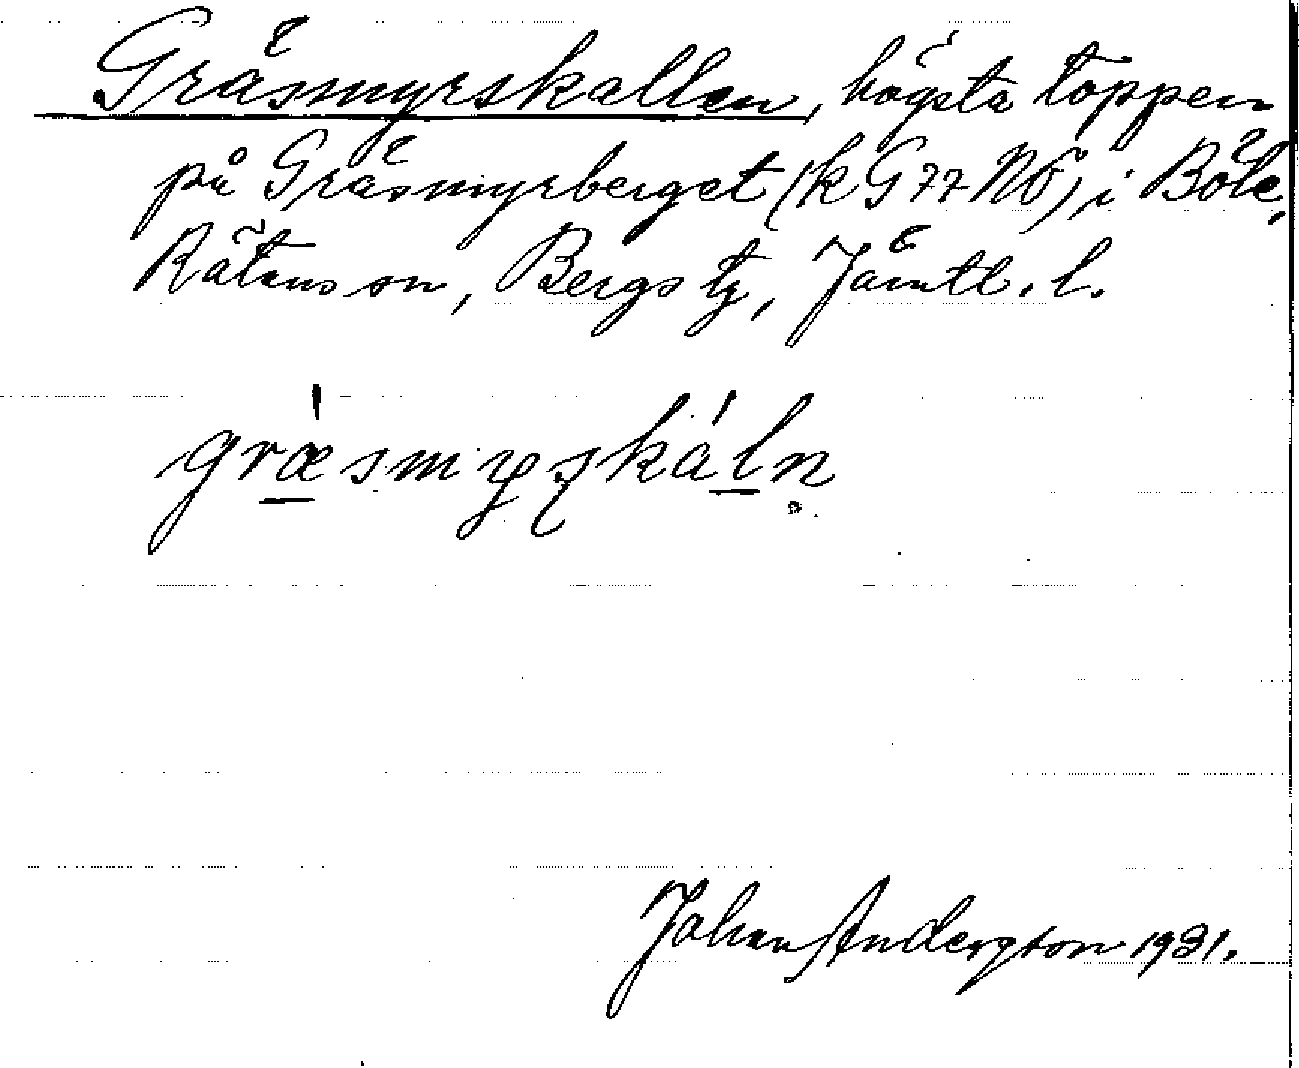 Gräsmyrskallen, högsta toppen
på Gräsmyrberget (k G 77 NO), i Böle,
Rätans sn, Bergs tg, Jämtl. l.
græsmyrskáln
Johan Anderson 1931.